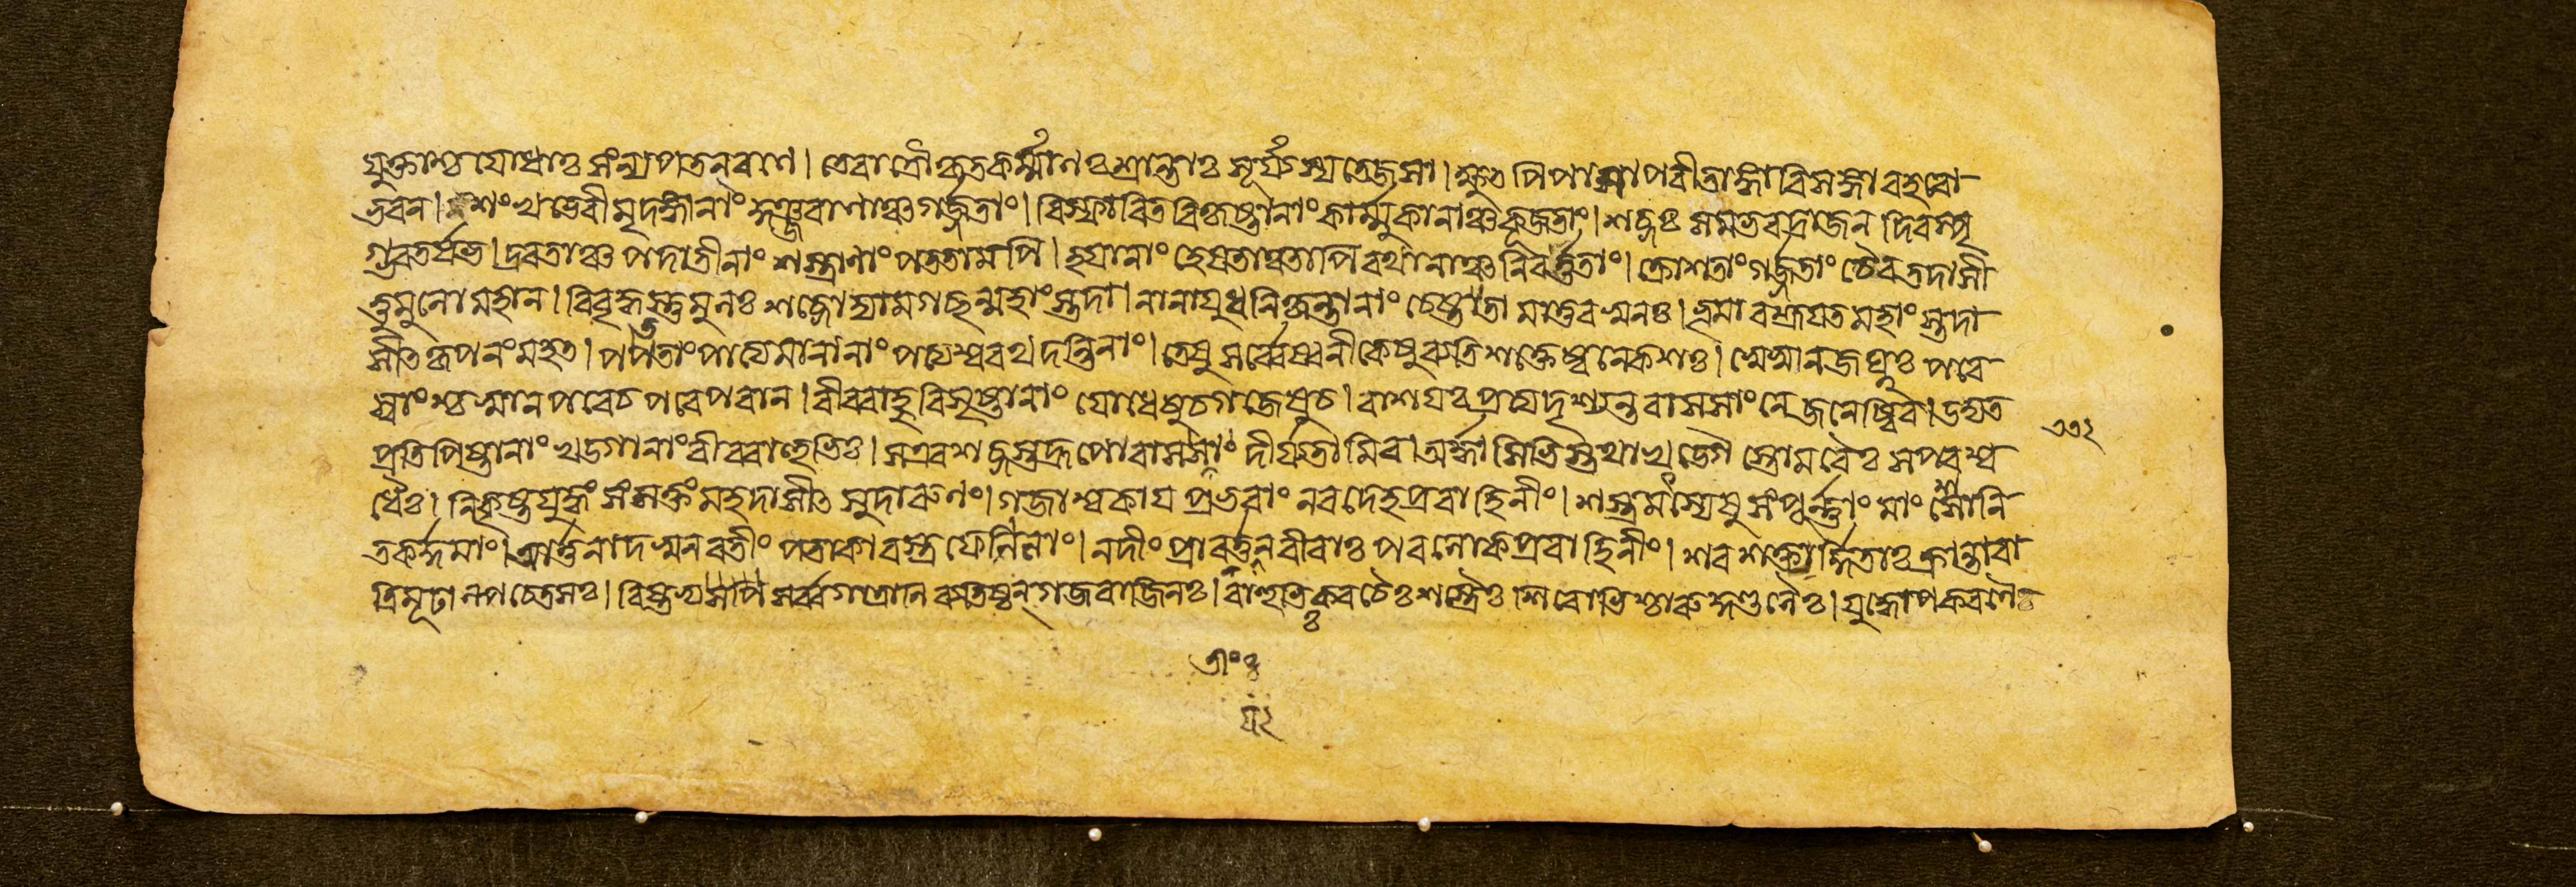 যুক্তাশ্চ যোধাঃ সংন্যপতন্‌ রণে। তে রাত্রৌ কৃতকর্ম্মাণঃ শ্রান্তাঃ সূর্য্যস্য তেজসা। ক্ষুৎ পিপাসাপরীতাঙ্গা বিসঙ্গা বহবো
ভবন। শংখভেরীমৃদঙ্গানাং কুঞ্জরাণাঞ্চ গর্জ্জতাং। বিস্ফারিত বিকৃষ্টানাং কার্ম্মুকানাঞ্চ কূজতাং। শব্দঃ সমভবদ্রাজেন দিবস্পৃ
গ্ভরতর্ষভ। দ্রবতাঞ্চ পদাতীনাং শস্ত্রাণাং পততামপি। হয়ানাং হেষতাঞ্চাপি রথানাঞ্চ নিবর্ত্ততাং। ক্রোশতাং গর্জ্জতাং চৈব তদাসী
ত্তুমুলো মহান। বিবৃদ্ধস্তুমুলঃ শব্দো দ্যামগছন্মহাংস্তদা। নানাযুধনিকৃন্তানাং চেষ্টতা মাতুর স্বনঃ। ভূমাবশ্রূয়ত মহাং স্তদা
সীৎ কৃপনং মহৎ। পততাং পাত্যমানানাং পত্যশ্বরথদন্তিনাং। তেষু সর্ব্বেষ্বনীকেষু ব্যতিশক্তেষ্বনেকশঃ। স্বে স্বান জঘ্নুঃ পরে
স্বাংশ্চ স্বান পরে চ পরে পরান। বীরবাহুবিসৃষ্টানাং যোধেষু চ গজেষু চ। বাশয়ঃ প্রত্যদৃশ্যন্ত বাসসাং নেজনেষ্বিব। উদ্যত
প্রতিপিষ্টানাং খড্গানাং বীরবাহুভিঃ। স এব শব্দস্তদ্রূপো বাসসাং দীর্য্যতা মিব। অর্দ্ধাসিভিস্তথা খড্গৈ স্তোমরৈঃ সপরশ্ব
ধৈঃ। নিকৃষ্টযুদ্ধং সংসক্তং মহদাসীৎ সুদারুণং। গজাশ্বকায় প্রভবাং নরদেহপ্রবাহিনীং। শস্ত্রমৎস্যেষু সংপূর্ন্নাং মাংসশোনি
তকর্দ্দমাং। আর্ত্তনাদ স্বনবতীং পতাকাবস্ত্রফেনিলাং। নদীং প্রাবর্ত্তয়ন্‌ বীরাঃ পরলোকপ্রবাহিনীং। শরশক্ত্যার্দ্দিতাঃ ক্লান্তা রা
ত্রিমূঢাল্পচেতসঃ। বিষ্টভ্য সর্ব্বগাত্রানি ব্যতিষ্ঠন্‌ গজবাজিনঃ। বাহুভিঃ কবচৈঃ শস্ত্রৈঃ শিরোভিশ্চারুকুণ্ডলৈঃ। যুদ্ধোপকরণৈঃ
৩৩২